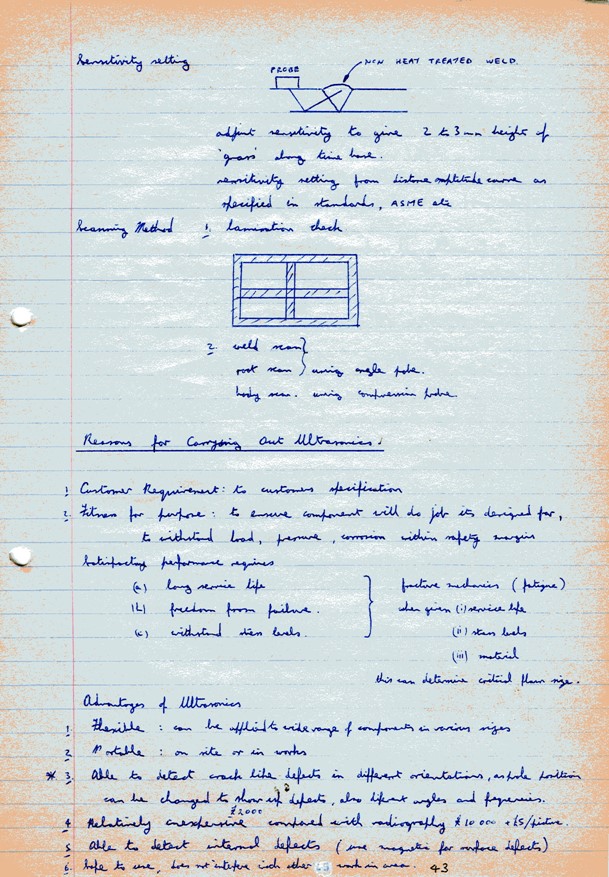 Sensitivity setting
PROBE
NON HEAT TREATED WELD.
adjust sensitivity to give 2 to 3 mm height of
'grass' along time base.
sensitivity setting from distance amplitude curve as
specified in standards, ASME etc
Scanning Method 1. lamination check
2. weld scan
root scan } using angle probe.
body scan. using compression probe.
Reasons for Carrying Out Ultrasonics.
1. Customer Requirement: to customers specification
2. Fitness for purpose: to ensure component will do job its designed for,
to withstand load, pressure, corrosion within safety margins
Satisfactory performance requires
(a) long service life
(b) freedom from failure.
(c) withstand stress levels.
fracture mechanics (fatigue)
when given (i) service life
(ii) stress levels
(iii) material
this can determine critical flaw size.
Advantages of Ultrasonics
1. Flexible: can be applied to wide range of components in various sizes
2. Portable: on site or in works
* 3. Able to detect crack like defects in different orientations, as probe positions
can be changed to show up defects, also different angles and frequencies.
£2,000
4 Relatively inexpensive compared with radiography £10 000 + £5/picture.
5 Able to detect internal defects (use magnetic for surface defects)
6. Safe to use, does not interfere with other work in area.
43